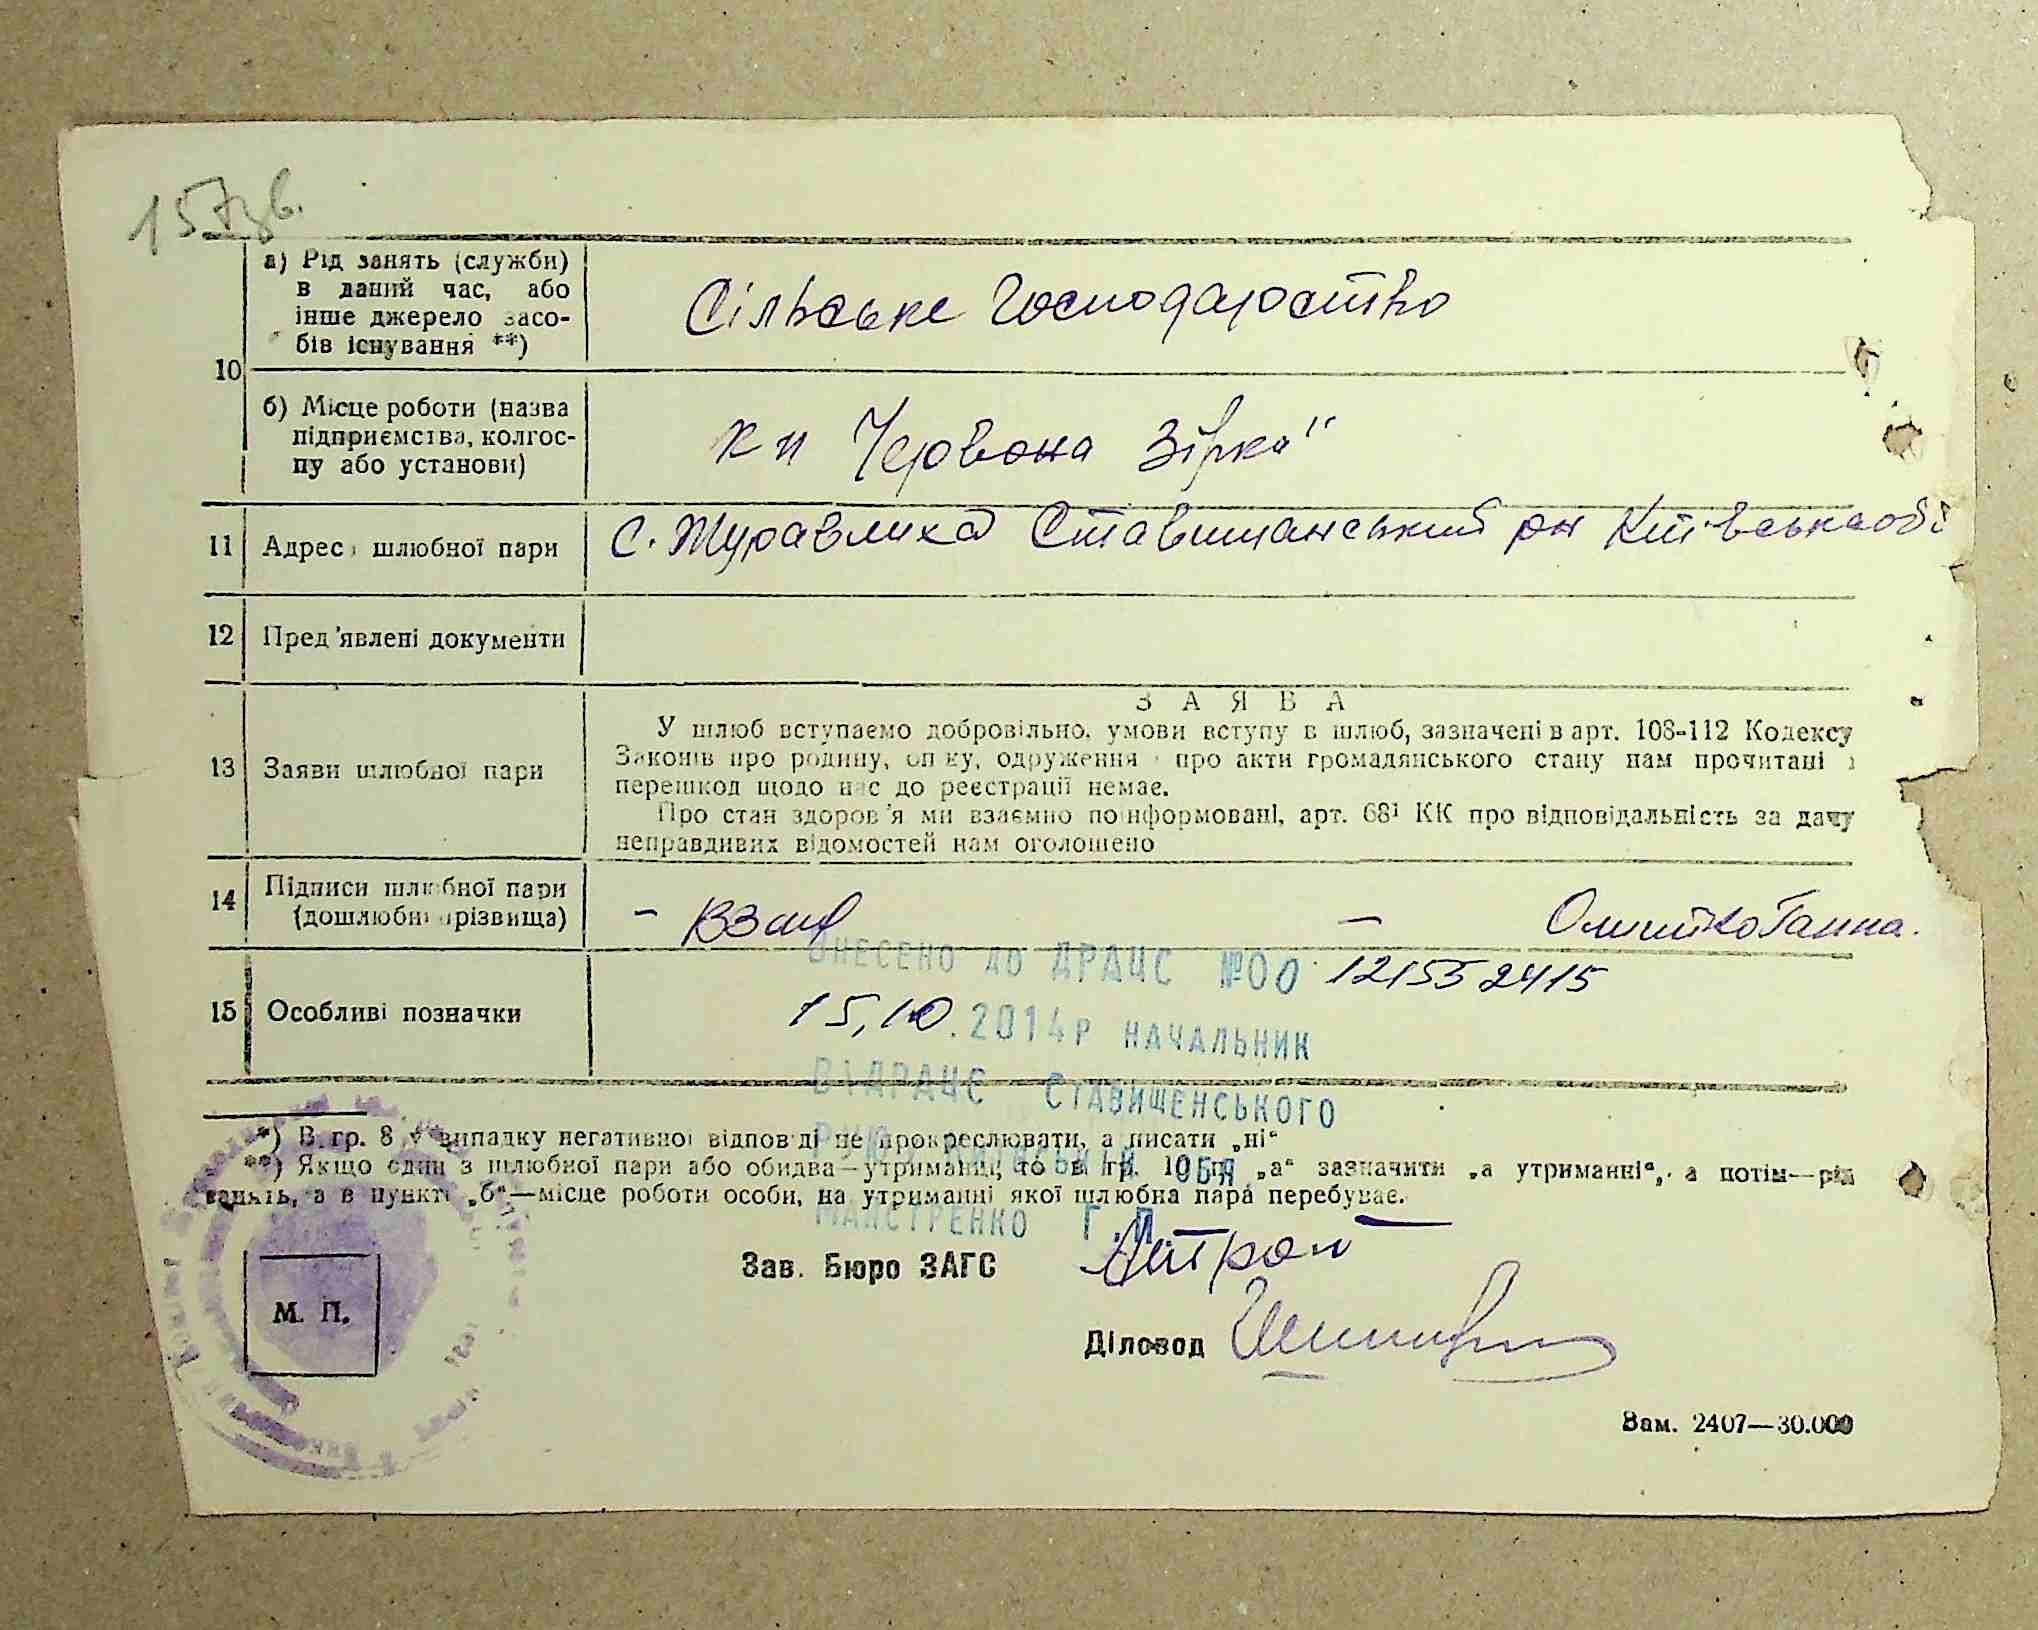 157зв.
а) Рід занять (служби)
в даний час, або
інше джерело засо-
бів існування **)
Сільське господарство
10
б) Місце роботи (назва
підприємства, колгос-
пу або установи)
кп Червона Зірка"
11 Адреса шлюбної пари
с. Журавлиха Ставищанський рн Київська об
12 Пред'явлені документи
13 Заяви шлюбної пари
ЗАЯВА
У шлюб вступаємо добровільно, умови вступу в шлюб, зазначені в арт. 108-112 Кодексу
Законів про родину, опіку, одруження і про акти громадянського стану нам прочитані і
перешкод щодо нас до реєстрації немає.
Про стан здоров'я ми взаємно поінформовані, арт. 68¹ КК про відповідальність за дачу
неправдивих відомостей нам оголошено
14 Підписи шлюбної пари
(дошлюбні прізвища)
Ганна.
15 Особливі позначки
ВНЕСЕНО ДО ДРАЦС №00 121552415
15,10.2014Р НАЧАЛЬНИК
ВІДРАЦС СТАВИЩЕНСЬКОГО
РУЮ КИЇВСЬКІЙ ОБЛ
МАЙСТРЕНКО Г.П.
*) В гр. 8 у випадку негативної відповіді не прокреслювати, а писати „ні“
**) Якщо один з шлюбної пари або обидва—утриманці, то в гр. 10 п. „а“ зазначити „а утриманні“, а потім—рід
занять, а в пункті „б“—місце роботи особи, на утриманні якої шлюбна пара перебуває.
М. П.
Зав. Бюро ЗАГС
Діловод
Зам. 2407—30.000